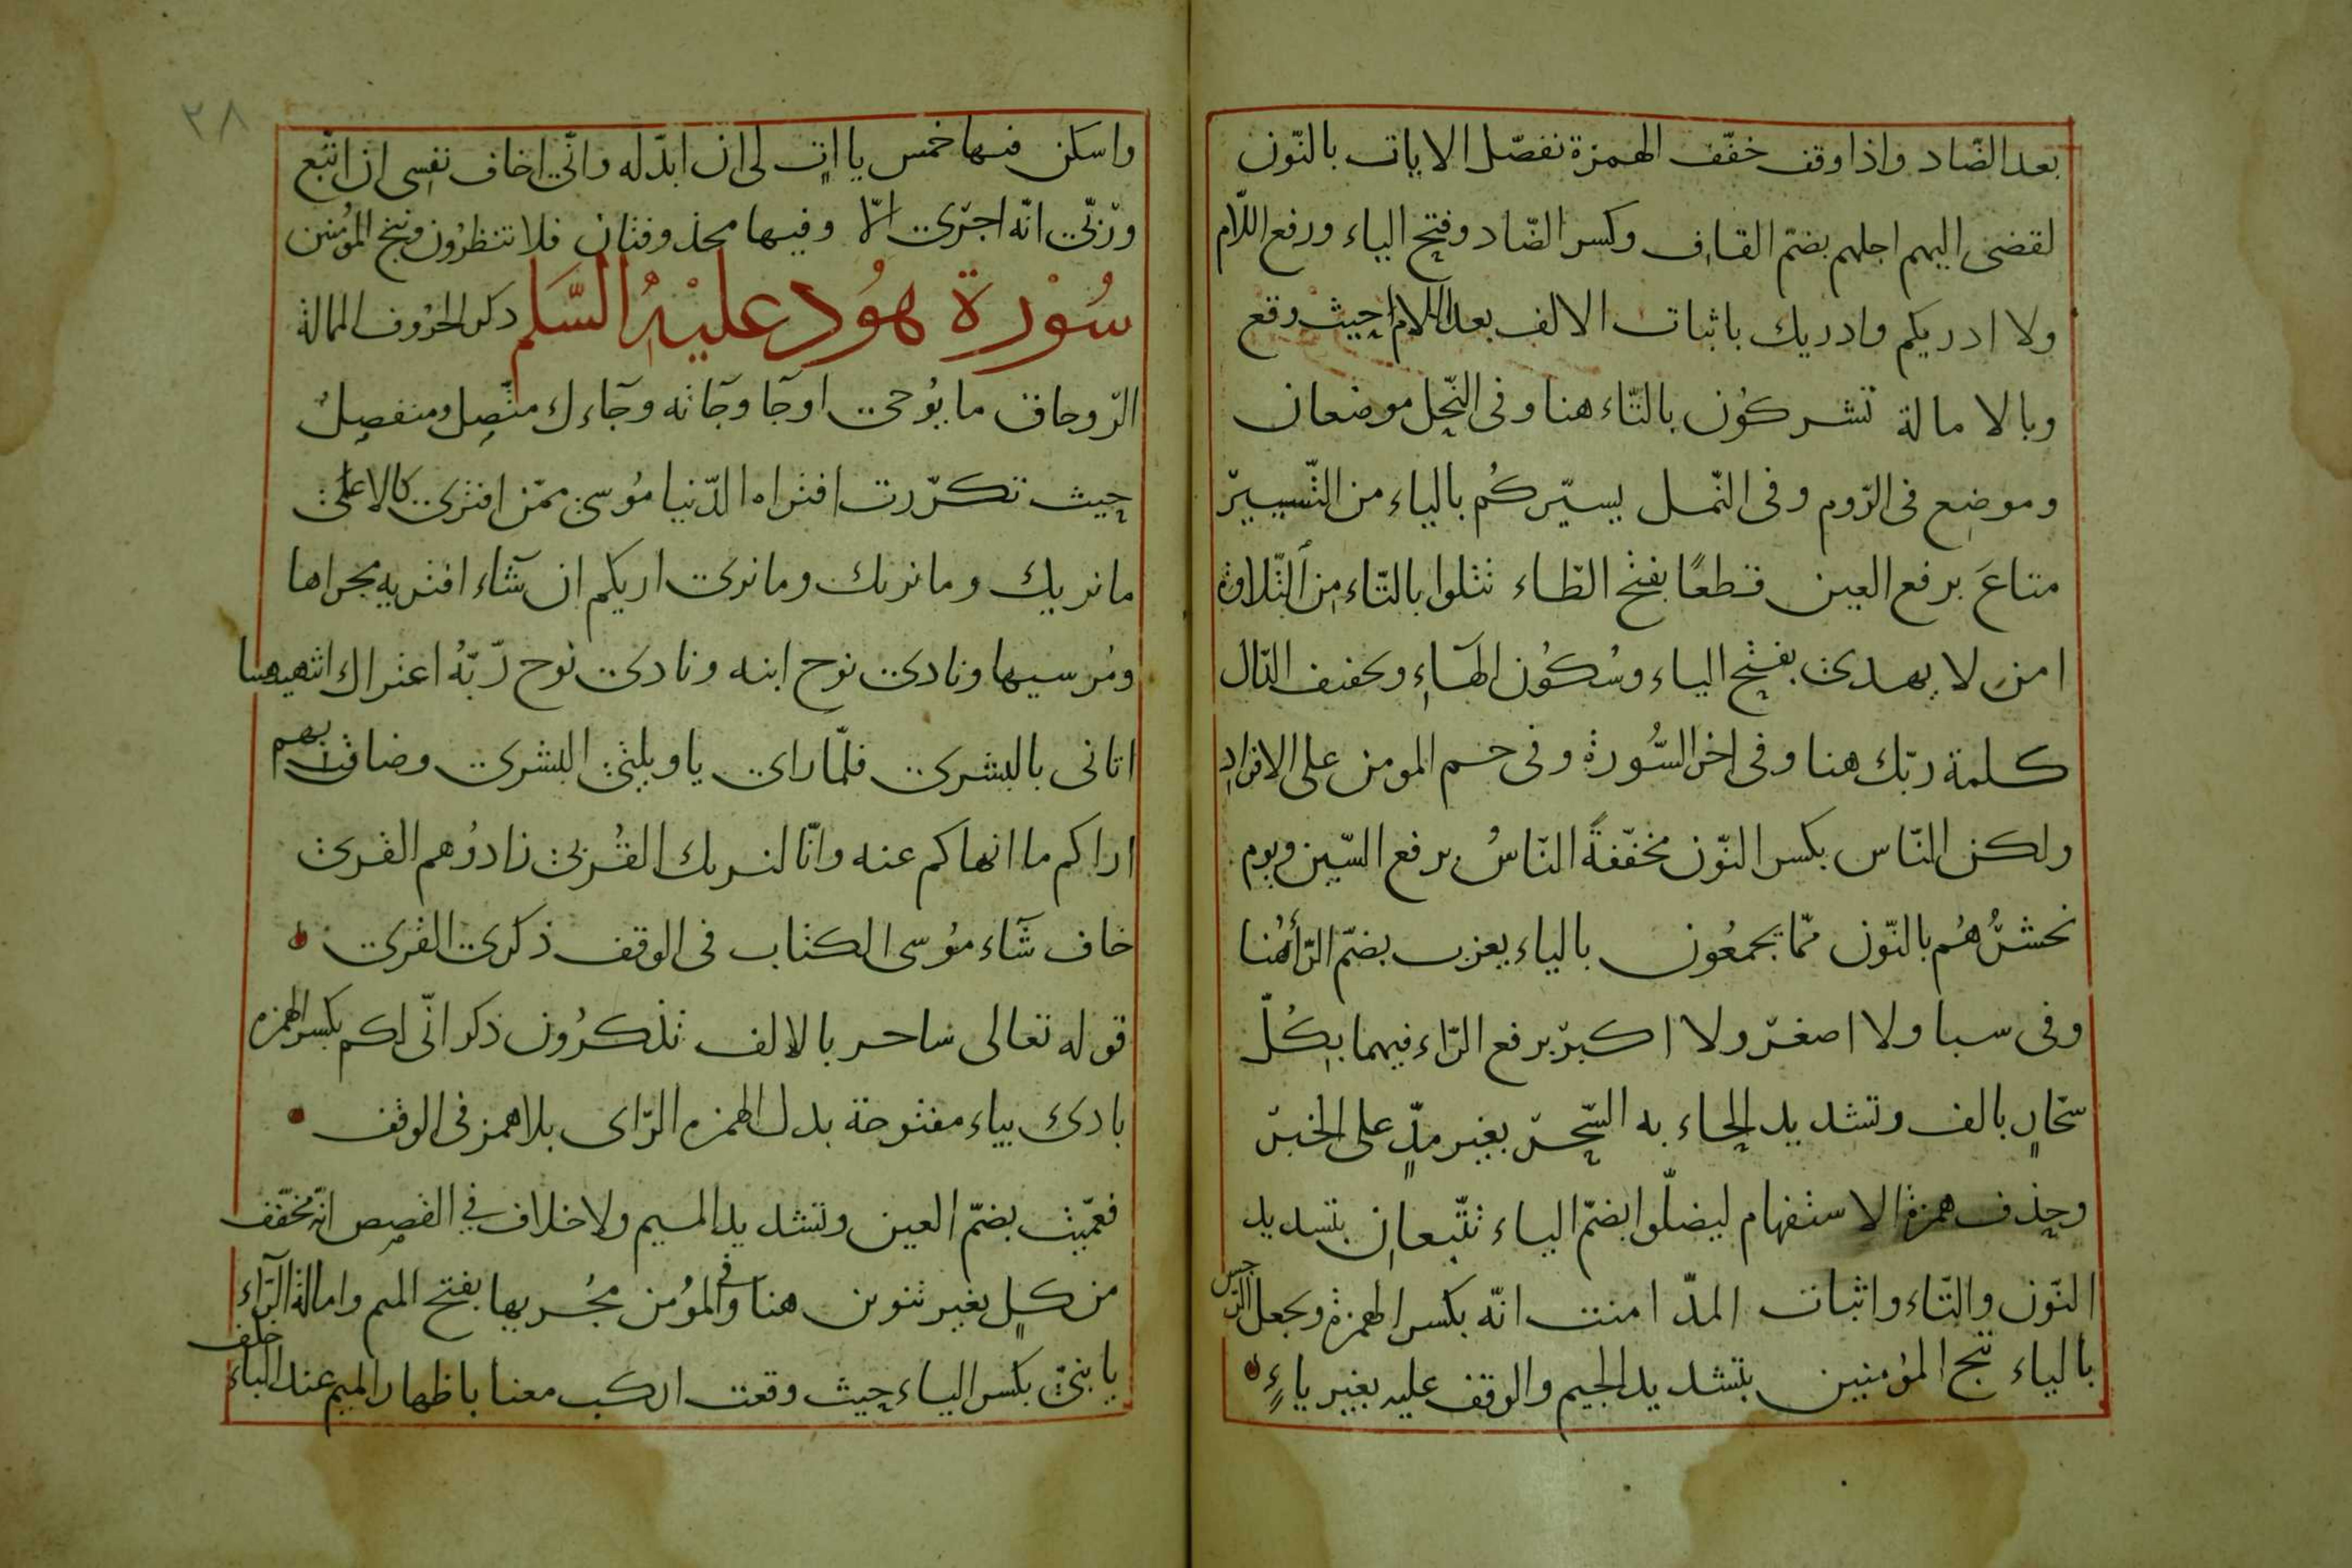 بعد الضّاد واذا وقف خفّف الهمزة نفصّل الايات بالنّون
لقضى اليهم اجلهم بضمّ القاف وكسر الضّاد وفتح الياء ورفع اللّام
ولا ادريكم وادريك باثبات الالف بعد اللام حيث وقع
وبالامالة تشركون بالتّاء هنا وفى النّحل موضعان
وموضع فى الرّوم وفى النّمل يسيّركُم بالياء من التّسيير
متاعَ برفع العين قطعًا بفتح الطّاء تتلوا بالتّاء من التّلاوة
امن لا يهدى بفتح الياء وسُكوُن الهاءِ وتخفيف الدّال
كلمة ربّك هنا وفى اخر السُّورة وفى حم المومن على الافرادِ
ولكن النّاس بكسر النّون مخفّفةً النّاسُ برفع السّين ويوم
نحشرُهُم بالنّون ممّا يجمعُون بالياء يعزب بضمّ الرّاء هُنا
وفى سبا ولا اصغرَ ولا اكبرَ برفع الرّاء فيهما بِكُلّ
سحّارٍ بالف وتشديد الحاء به السّحر بغير مدٍّ على الخبر
وحذف همزة الاستفهام ليضلّوا بضمّ الياء تتّبعان بتشديد
النّون والتّاء واثبات المدّ امنت انّه بكسر الهمزة ويجعل الرّجس
بالياء ننج المؤمنين بتشديد الجيم والوقف عليه بغير ياءٍ
٢٨
واسكن فيها خمس ياات لى ان ابدّله وانّى اخاف نفسى ان اتّبع
وربّى انّه اجرى الّا وفيها محذوفتان فلا تنظرُون وننج المؤمنين
سُوْرة هوُد عليْهِ السَّلم ذكر الحرُوف الممالة
الر وحاق ما يوُحى اوجآ وجآته وجآءك متّصِل ومنفصِلٌ
حيث تكرّرت افتراه الدّنيا مُوسى ممّن افترى كالاعلى
ما نريك وما نريك وما نرى اريكم ان شآء افتريه مجراها
ومُرسيها ونادى نوح ابنه ونادى نوح ربّهُ اعتراك اتنهينا
اتانى بالبشرى فلمّا راى ياويلتى البشرى وضاق بهم
اراكم ما انهاكم عنه وانّا لنريك القُربى زادُوهم القرى
خاف شآء موُسى الكتاب فى الوقف ذكرى القرى
قوله تعالى ساحر بالالف تذكرُون ذكر انّى لكم بكسر الهمزه
بادى بياء مفتوحة بدل الهمزه الرّاى بلا همز فى الوقف
فعمّيت بضمّ العين وتشديد الميم ولاخلاف في القصص انّه مخفّف
من كلٍ بغير تنوين هنا وفى المؤمن مجُريها بفتح الميم وامالة الرّاء
يا بنىّ بكسر الياء حيث وقعت اركب معنا باظهار الميم عند الباء خلف